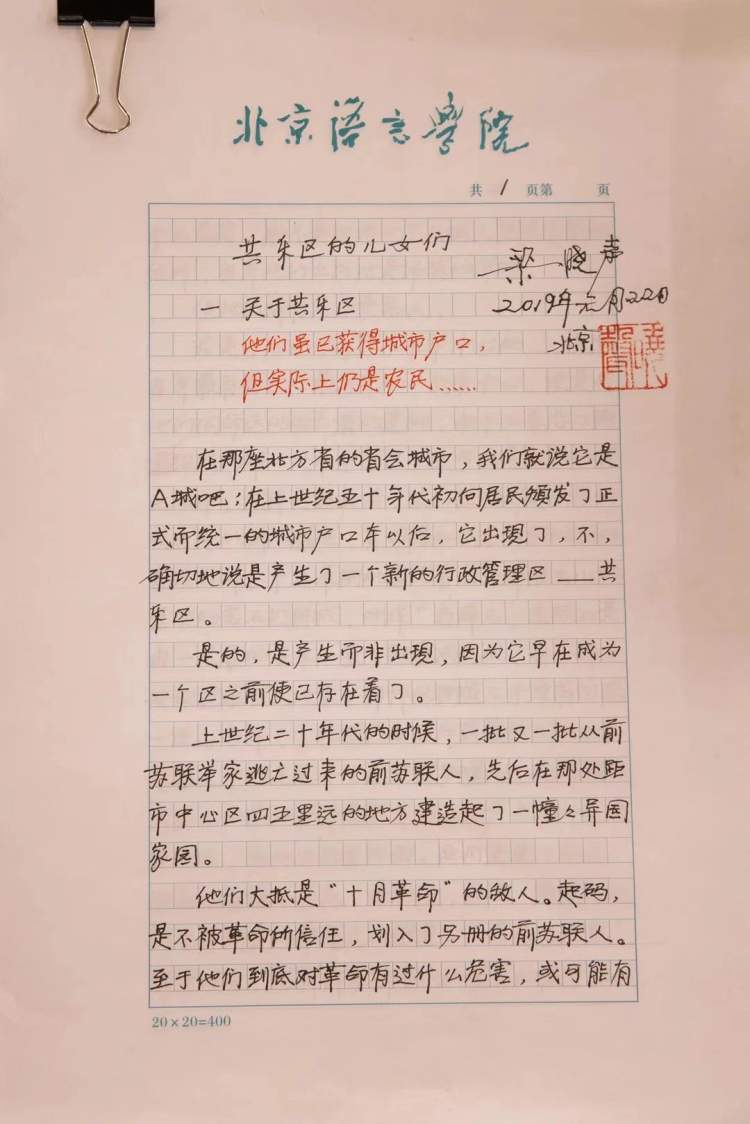 北京语言學院
共 1 页第 页
共乐区的儿女们
梁晓声
一 关于共乐区
2019年元月22日
他们虽已获得城市户口，
北京
但实际上仍是农民……
在那座北方省的省会城市，我们就说它是
A城吧；在上世纪五十年代初向居民颁发了正
式而统一的城市户口本以后，它出现了，不，
确切地说是产生了一个新的行政管理区——共
乐区。
是的，是产生而非出现，因为它早在成为
一个区之前便已存在着了。
上世纪二十年代的时候，一批又一批从前
苏联举家逃亡过来的前苏联人，先后在那处距
市中心区四五里远的地方建造起了一幢々异国
家园。
他们大抵是“十月革命”的敌人。起码，
是不被革命所信任，划入了另册的前苏联人。
至于他们到底对革命有过什么危害，或可能有
20×20=400